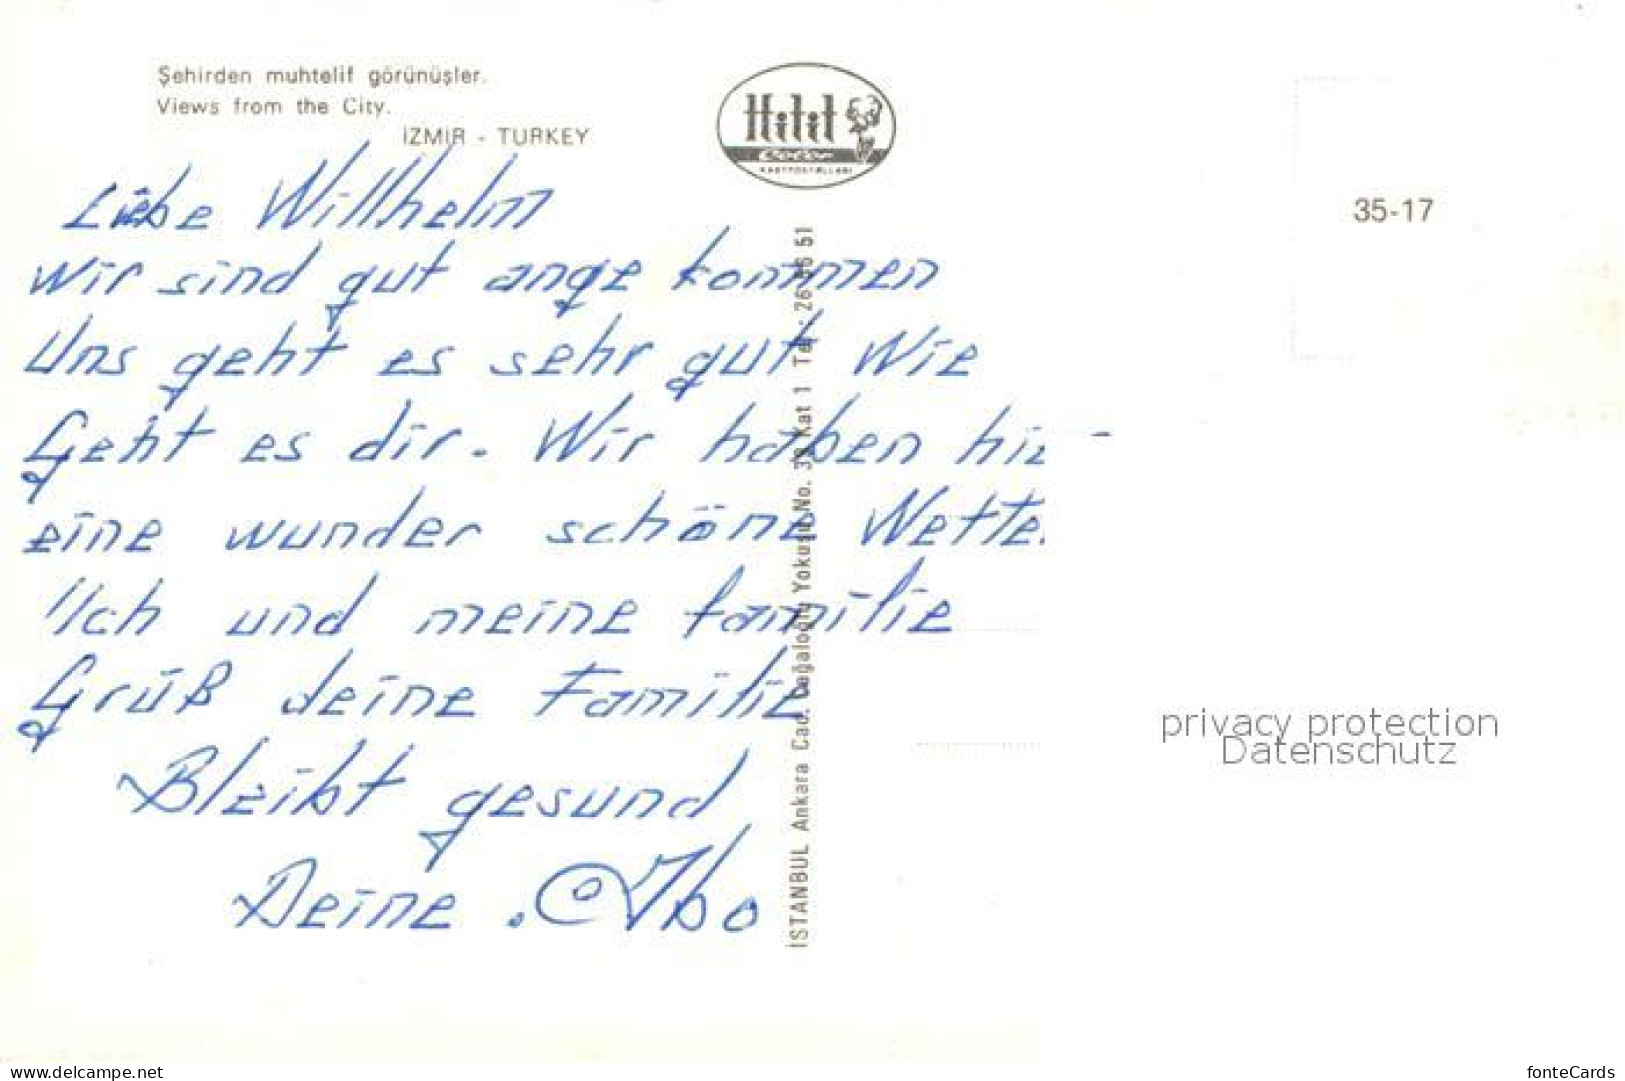 Şehirden muhtelif görünüşler.
Views from the City.
İZMİR - TURKEY
Hitit
Color
KARTPOSTALLARI
35-17
Liebe Willhelm
wir sind gut ange kommen
Uns geht es sehr gut Wie
Geht es dir. Wir haben hie
eine wunder schöne Wette
Ich und meine familie
Grüß deine Familie
Bleibt gesund
Deine Ibo
İSTANBUL Ankara Cad. Cağaloğlu Yokuşu No. Kat 1 Tel: 26 51
privacy protection
Datenschutz
www.delcampe.net
fonteCards